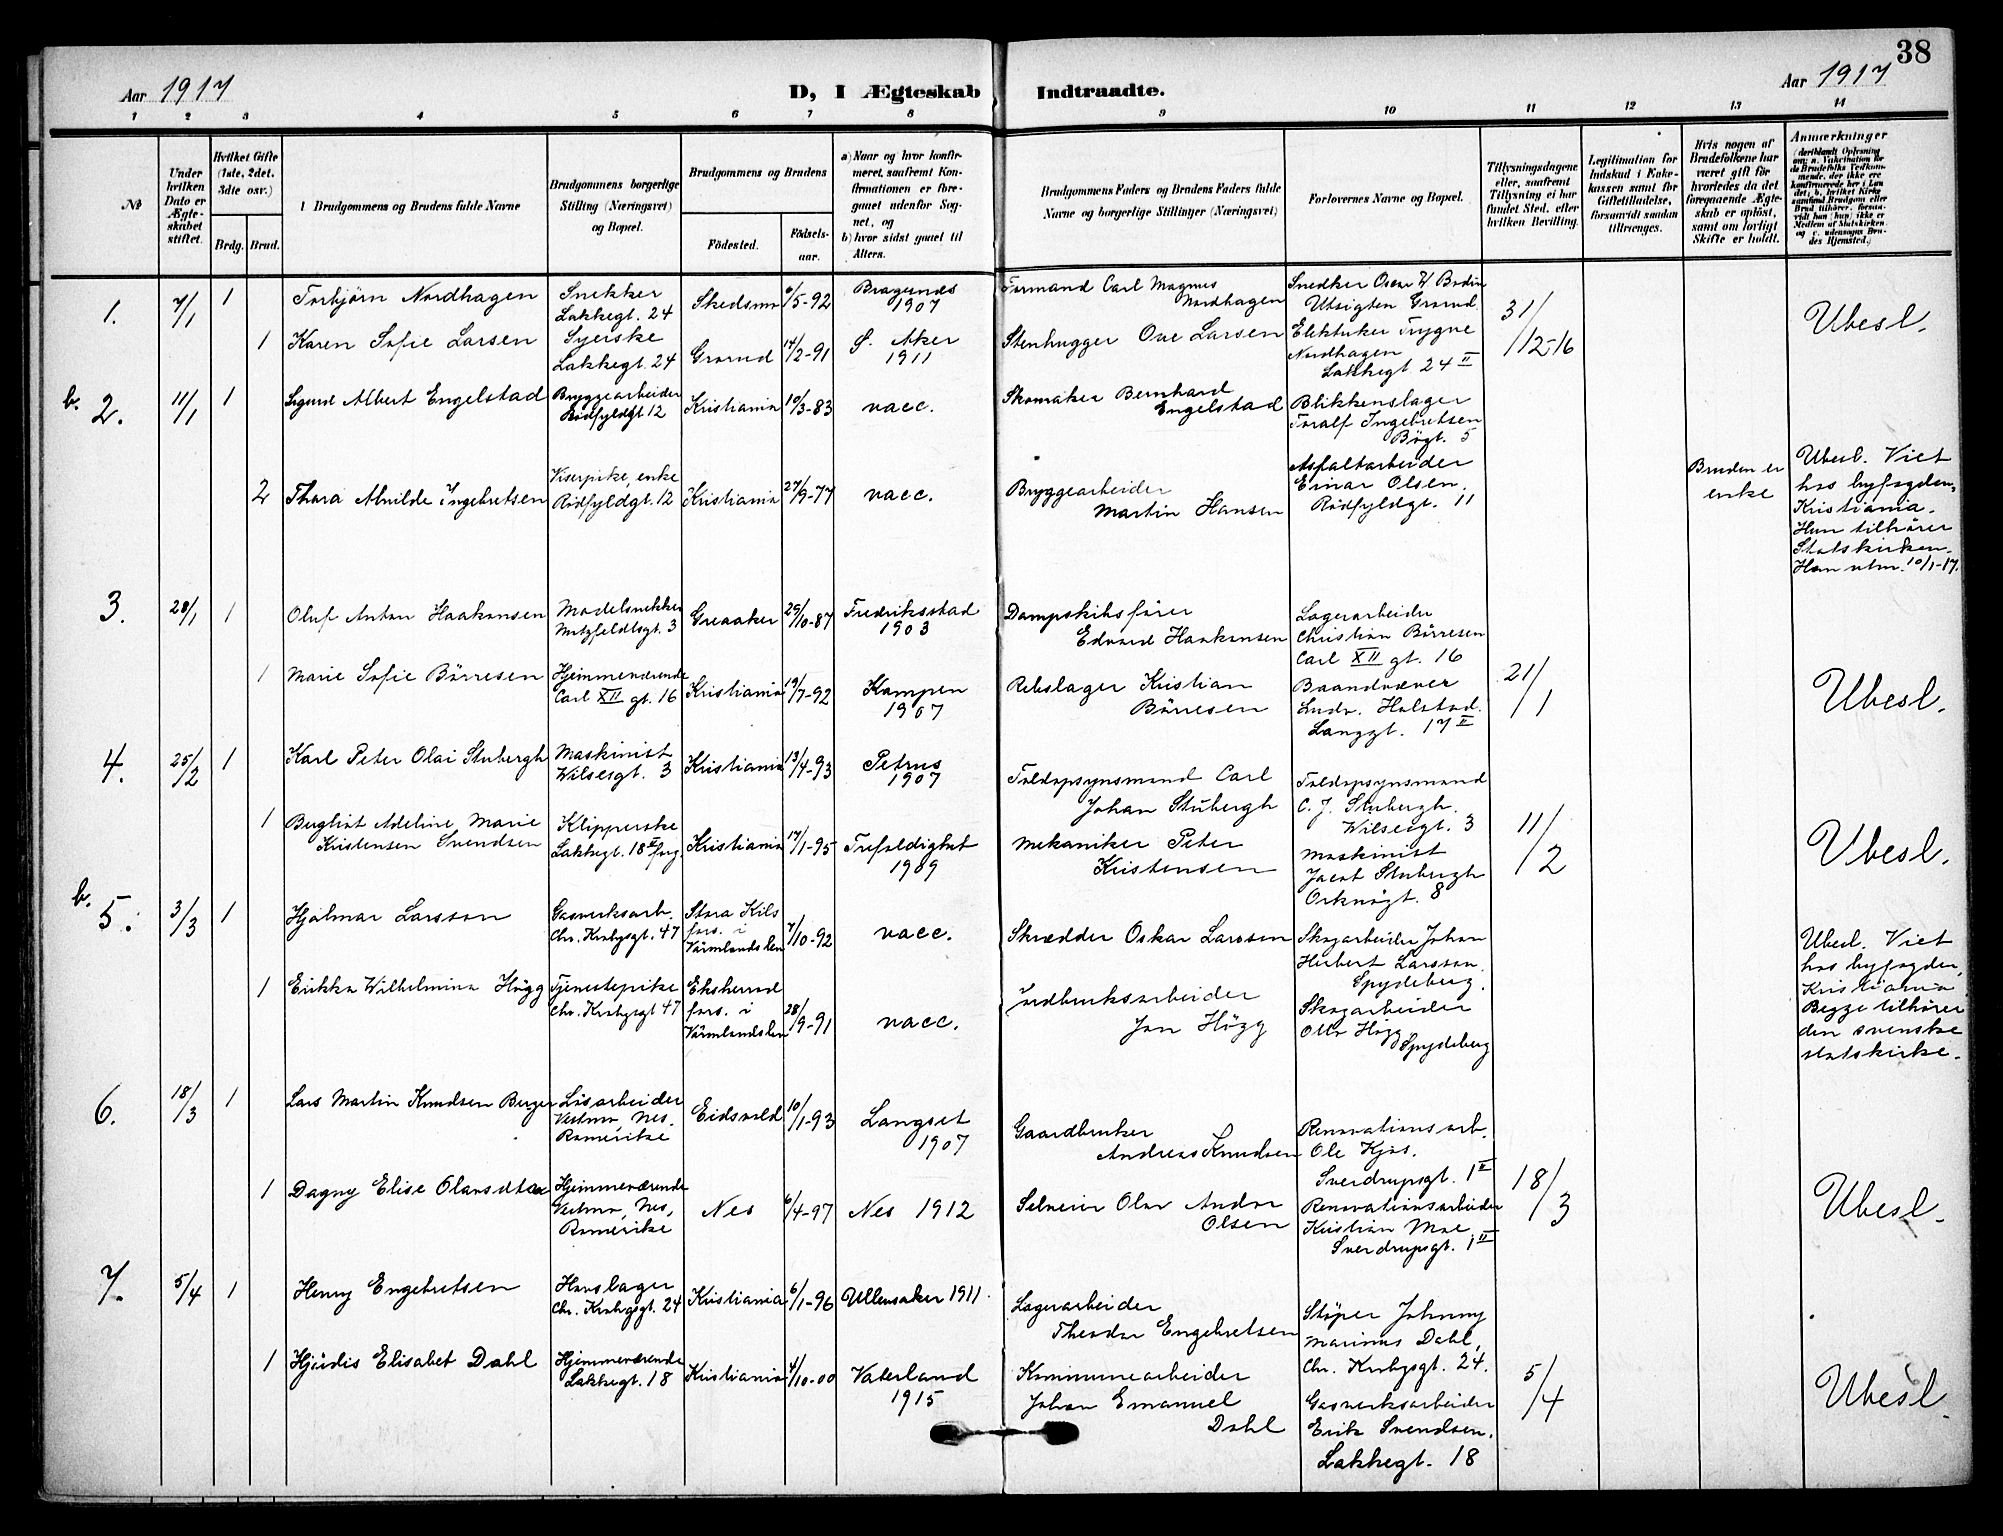 38
Aar 1917 D, I Ægteskab Indtraadte. Aar 1917
1 2 3 4 5 6 7 8 9 10 11 12 13 14
№
Under hvilken Dato er Ægteskabet stiftet.
Hvilket Gifte (1ste, 2det, 3dte osv.)
Brdg. Brud.
Brudgommens og Brudens fulde Navne
Brudgommens borgerlige Stilling (Næringsvei) og Bopæl.
Brudgommens og Brudens
Födested. Födselsaar.
a) Naar og hvor konfirmeret, saafremt Konfirmationen er foregaaet udenfor Sognet, og
b) hvor sidst gaaet til Alters.
Brudgommens Faders og Brudens Faders fulde Navne og borgerlige Stillinger (Næringsvei)
Forlovernes Navne og Bopæl.
Tillysningsdagene eller, saafremt Tillysning ei har fundet Sted, efter hvilken Bevilling.
Legitimation for Indskud i Enkekassen samt for Giftetilladelse, forsaavidt saadan tiltrænges.
Hvis nogen af Brudefolkene har været gift før hvorledes da det foregaaende Ægteskab er opløst, samt om lovligt Skifte er holdt.
Anmærkninger
1. 7/1 1 Torbjörn Nordhagen
Snekker
Lakkegt. 24
Skedsmo 6/5-92
Bragernes
1907
Formand Carl Magnus
Nordhagen
Utsigten Grorud
31/12-16
Ubesl.
1 Karen Sofie Larsen
Syerske
Lakkegt. 24
Grorud 14/2-91
Ö. Aker
1911
Stenhugger Ove Larsen
Elektriker Trygve
Nordhagen
Lakkegt 24 II
b. 2. 11/1 1 Sigurd Albert Engelstad
Bryggearbeider
Rödfyldgt 12
Kristiania 10/3-83 vacc.
Skomaker Bernhard
Engelstad
Blikkenslager
Toralf Ingebretsen
Bögt. 5
2 Thora Alvilde Ingebretsen
Viserpike, enke
Rödfyldgt. 12
Kristiania 27/9-77 vacc.
Bryggearbeider
Martin Hansen
Asfaltarbeider
Einar Olsen.
Rödfyldgt. 11
Bruden er
enke
Ubesl. Viet
hos byfogden,
Kristiania.
Hun tilhører
Statskirken.
Han utm. 10/1-17.
3. 28/1 1 Oluf Anton Haakonsen
Modelsnekker
Motzfeldtsgt. 3
Greaaker 29/10-87
Fredriksstad
1903
Dampskibsfører
Edvard Haakonsen
Lagerarbeider
Christian Börresen
Carl XII gt. 16
21/1
Ubesl.
1 Marie Sofie Börresen
Hjemmeværende
Carl XII gt. 16
Kristiania 19/7-92
Kampen
1907
Rebslager Kristian
Börresen
Baandvæver
Ludv. Halstad.
Langgt. 17 II
4. 25/2 1 Karl Peter Olai Stubergh
Maskinist
Wilsesgt. 3
Kristiania 13/4-93
Petrus
1907
Toldopsynsmand Carl
Johan Stubergh
Toldopsynsmand
C. J. Stubergh.
Wilsesgt. 3
11/2
Ubesl.
1 Bergliot Adeline Marie
Kristensen Svendsen
Klipperske
Lakkegt. 18 II forg.
Kristiania 17/1-95
Trefoldighet
1909
Mekaniker Peter
Kristensen
Maskinist
Jacob Stubergh
Orknögt. 8
b. 5. 3/3 1 Hjalmar Larsson
Gasverksarb.
Chr. Krohgsgt. 47
Stora Kils
fors. i
Värmlandslen
7/10-92 vacc.
Skrædder Oskar Larsson
Skogarbeider Johan
Herbert Larsson.
Spydeberg.
Ubesl. Viet
hos byfogden,
Kristiania.
Begge tilhører
den svenske
statskirke.
1 Erikka Wilhelmina Högg
Tjenestepike
Chr. Krohgsgt 47
Eksherrad
fors. i
Värmlandslen
28/9-91 vacc.
Jordbruksarbeider
Jon Högg
Skogarbeider
Olle Högg
Spydeberg
6. 18/3 1 Lars Martin Knudsen Berger
Lösarbeider
Vestmo, Nes.
Romerike
Eidsvold 10/1-93
Langset
1907
Gaardbruker
Andreas Knudsen
Renovationsarb.
Ole Kjos.
Sverdrupsgt. 1 II
18/3
Ubesl.
1 Dagny Elise Olavsdtr
Hjemmeværende
Vestmo, Nes,
Romerike
Nes 6/4-97 Nes 1912
Selveier Olav Andor
Olsen
Renovationsarbeider
Kristian Moe
Sverdrupsgt. 1 II
7. 5/4 1 Henry Engebretsen
Hovslager
Chr. Krohgsgt. 24
Kristiania 6/1-96 Ullensaker 1911.
Lagerarbeider
Theodor Engebretsen
Støper Johnny
Marinus Dahl,
Chr. Krohgsgt. 24.
5/4
Ubesl.
1 Hjördis Elisabet Dahl
Hjemmeværende
Lakkegt. 18
Kristiania 4/10-00
Vaterland
1915
Kommunearbeider
Johan Emanuel
Dahl
Gasverksarbeider
Erik Svendsen.
Lakkegt. 18